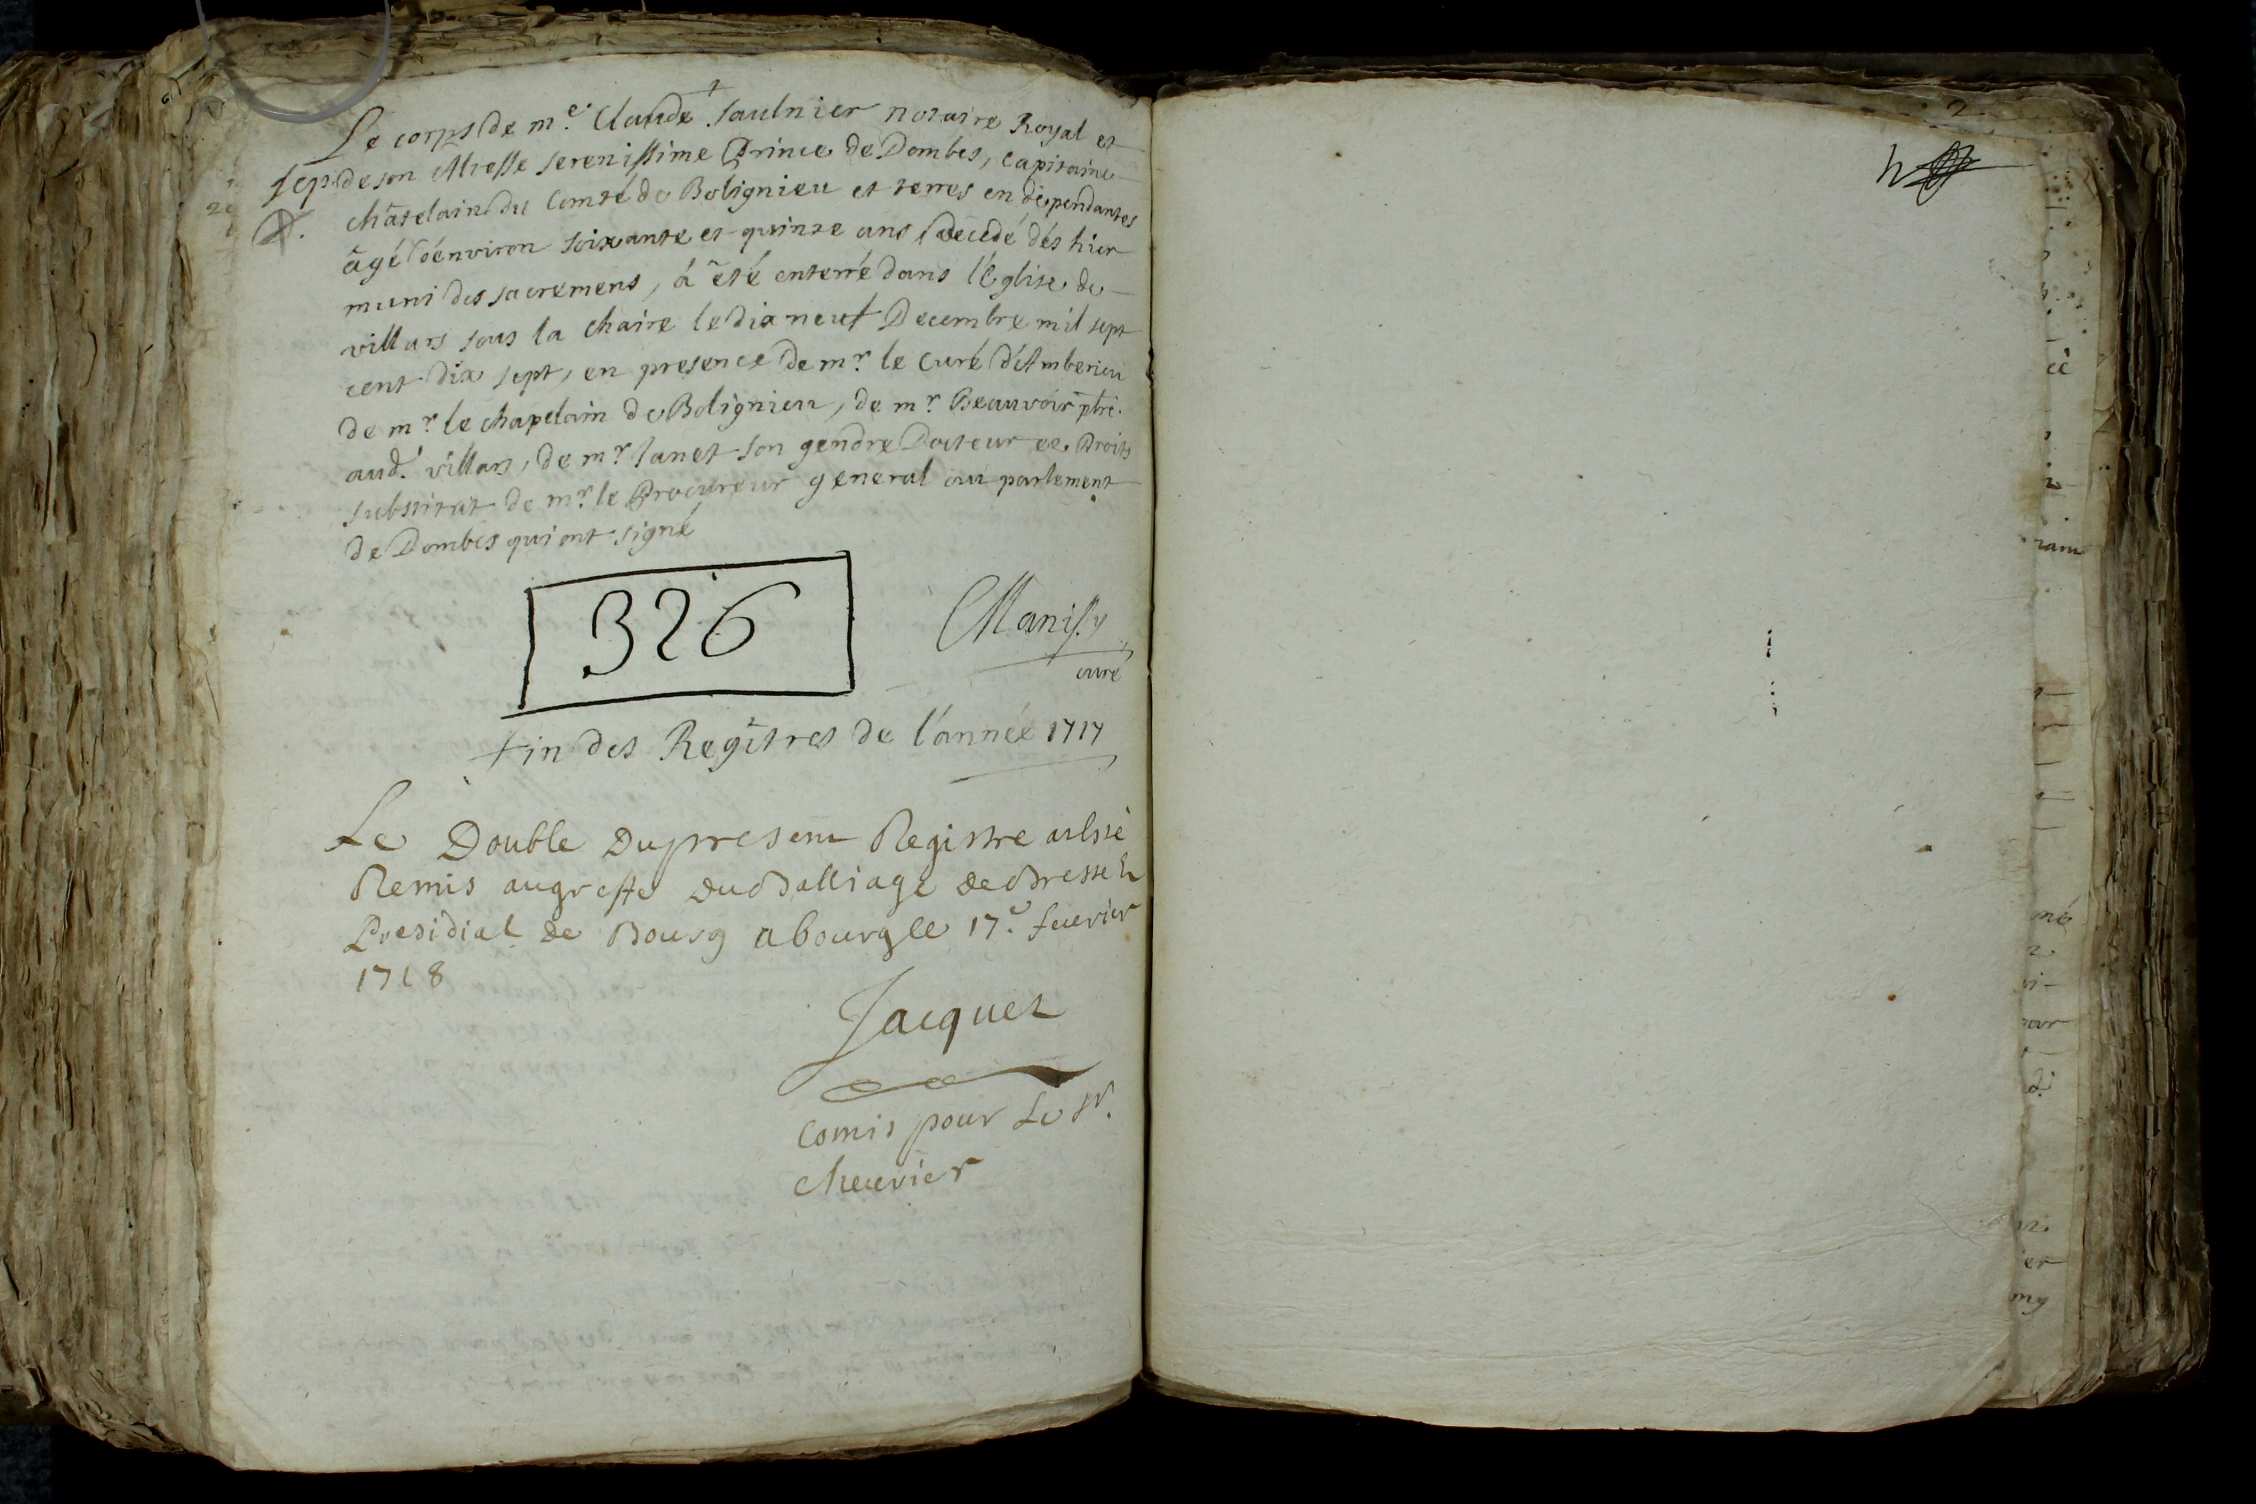 Le corps de me. Claude Saulnier notaire Royal et
sep. de son Altesse serenissime Prince de Dombes, capitaine
châtelain du Comté de Bolignieu et terres en dépendantes
âgé d'environ soixante et quinze ans decedé dés hier
muni des sacremens, á été enterré dans l'église de
villars sous la chaire le dix neuf Decembre mil sept
cent dix sept, en presence de mr. le Curé d'Amberieu
de mr. le chapelain de Bolignieu, de mr. Beauvoir ptre.
aud. villars, de mr. Janet son gendre Docteur ez Droits
substitut de mr. le Procureur general au parlement
de Dombes qui ont signé
326
Manissy
curé
fin des Regîtres de l'année 1717
Le Double Du present Registre a esté
Remis au greffe Du Balliage de Bresse &
Presidial de Bourg a bourg le 17e. feuvrier
1718
Jacquet
Comis pour Le Sr.
Cheuvrier
2